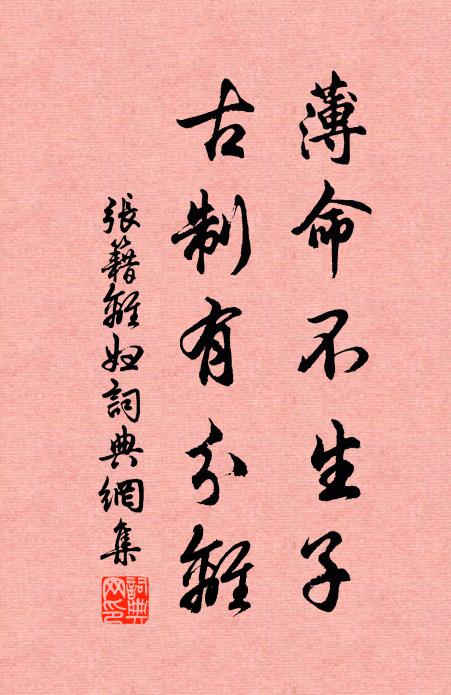 薄命不生子
古制有分離
張籍離婦詞典網集
詞典網印